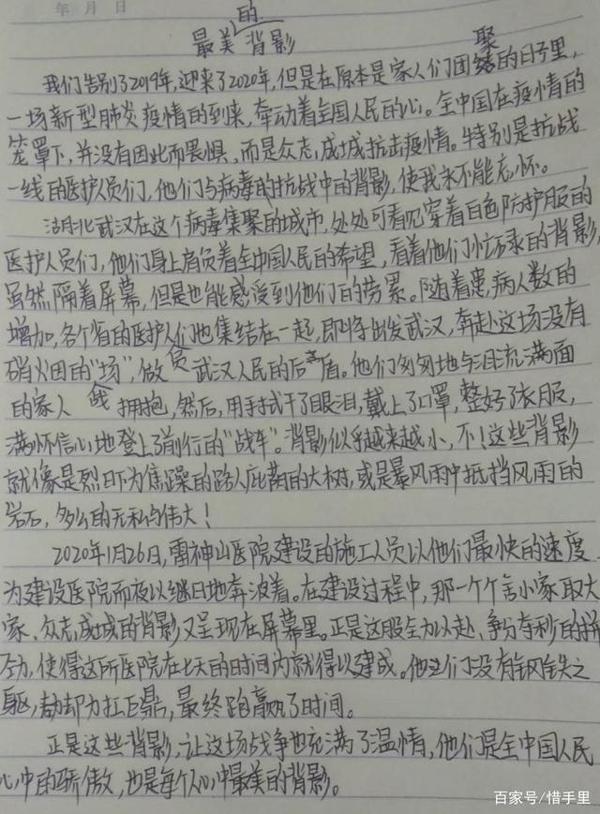 年 月 日
最美的背影
聚
我们告别了2019年,迎来了2020年,但是在原本是家人们团的日子里,
一场新型肺炎疫情的到来,牵动着全国人民的心。全中国在疫情的
笼罩下,并没有因此而畏惧,而是众志成城抗击疫情。特别是抗战
一线的医护人员们,他们与病毒的抗战中的背影,使我永不能忘怀。
湖北武汉在这个病毒集聚的城市,处处可看见穿着白色防护服的
医护人员们,他们身上肩负着全中国人民的希望,看着他们忙碌的背影,
虽然隔着屏幕,但是也能感受到他们的劳累。随着患病人数的
增加,各个省的医护人们也集结在一起,即将出发武汉,奔赴这场没有
硝烟的“战场”,做武汉人民的后盾。他们匆匆地与泪流满面
的家人拥抱,然后,用手拭干了眼泪,戴上了口罩,整好了衣服,
满怀信心地登上了前行的“战车”。背影似乎越来越小,不!这些背影
就像是烈日下为焦躁的路人庇荫的大树,或是暴风雨中抵挡风雨的
岩石,多么的无私与伟大!
2020年1月26日,雷神山医院建设的施工人员以他们最快的速度
为建设医院而夜以继日地奔波着。在建设过程中,那一个个舍小家取大
家、众志成城的背影又呈现在屏幕里。正是这股全力以赴、争分夺秒的拼
劲,使得这所医院在七天的时间内就得以建成。他们没有钢铁之
躯,却力扛巨鼎,最终跑赢了时间。
正是这些背影,让这场战争也充满了温情,他们是全中国人民
心中的骄傲,也是每个人心中最美的背影。
百家号/惜手里